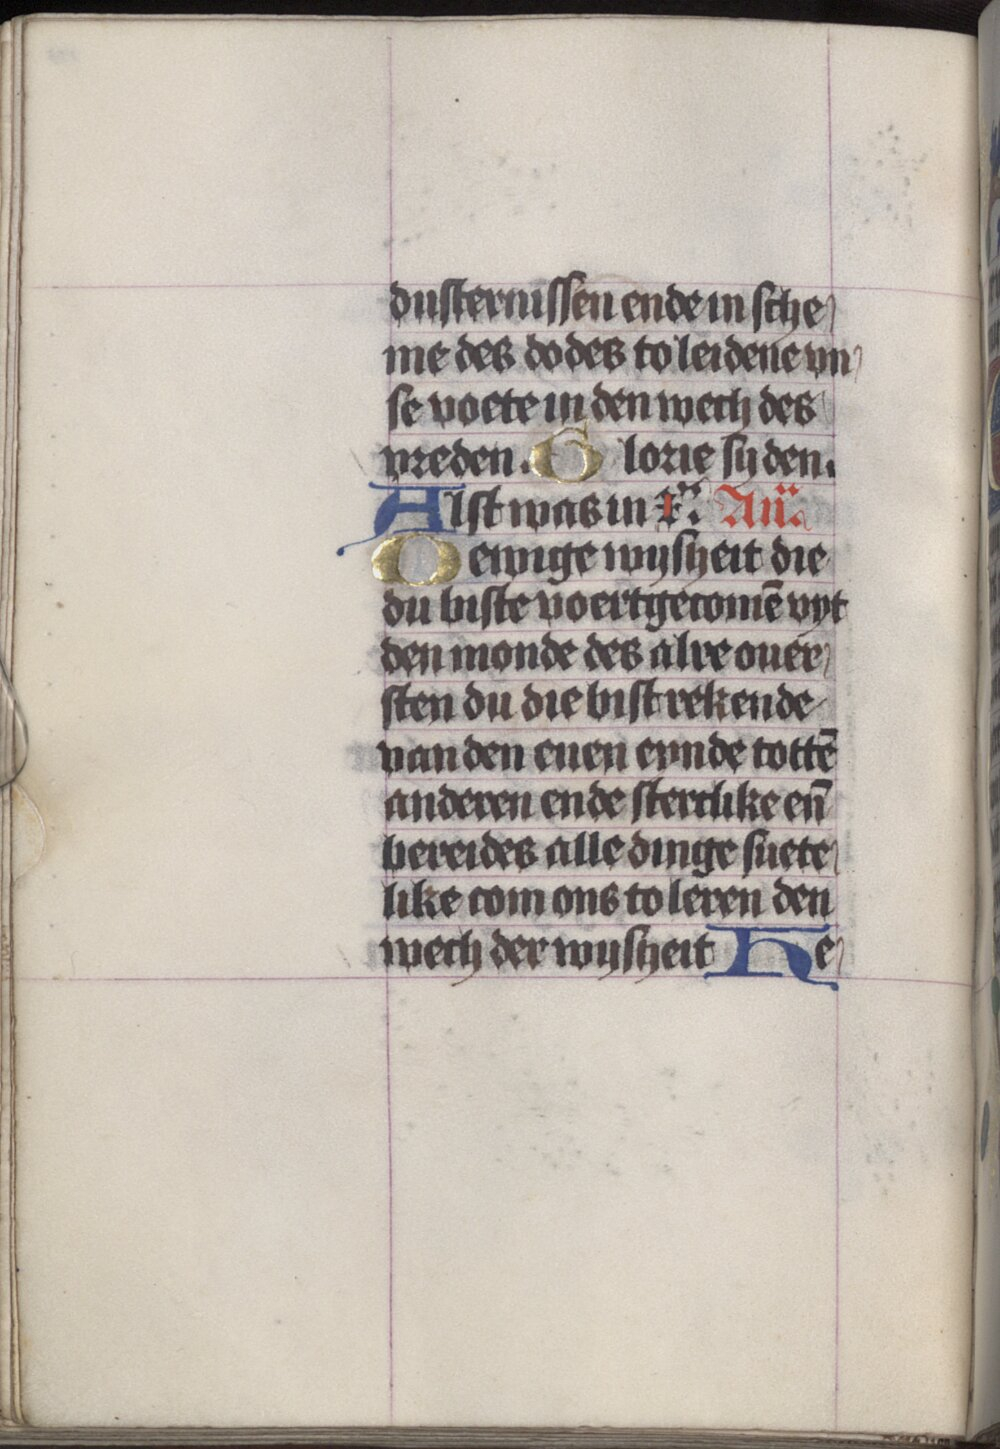 dusternissen ende in sche
me des dodes to leidene vn
se voete in den wech des
vreden. Glorie sy den.
Alst was in
O ewige wijsheit die
du biste voertgecomē vyt
den monde des alre ouer
sten du die bist rekende
van den enen eynde tottē
anderen ende stertlike eñ
bereides alle dinge suete
like com ons to leren den
wech der wijsheit He